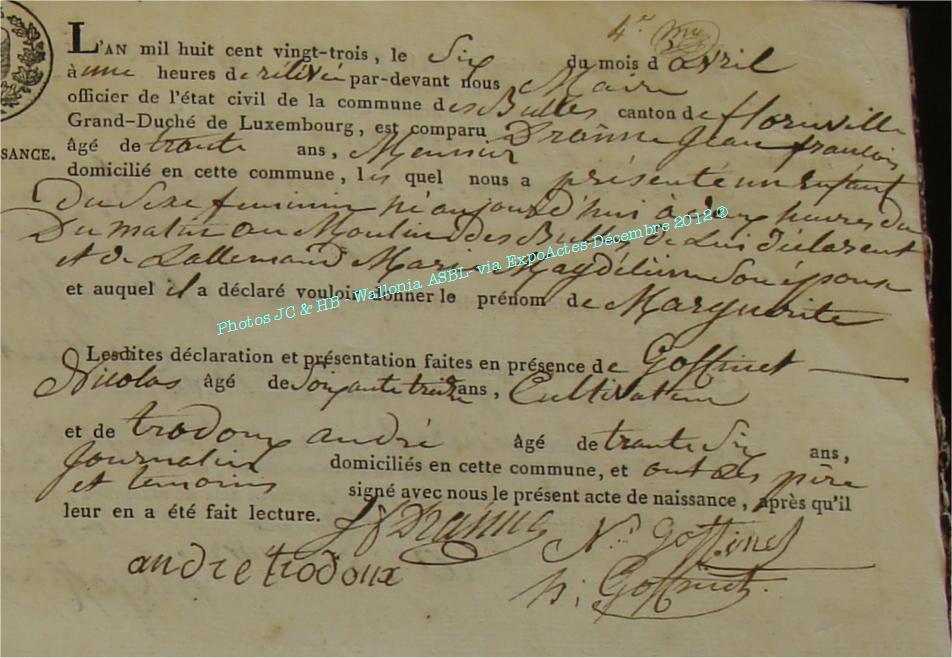 4.e
L'AN mil huit cent vingt-trois, le Six du mois d'avril
à une heures de rélévée par-devant nous Maire
officier de l'état civil de la commune des Bulles canton de florenville
Grand-Duché de Luxembourg, est comparu Dranne Jean francois
SANCE.
âgé de trante ans, Meunier
domicilié en cette commune, les quel nous a présenté un enfant
Du Sexe feminin né aujourd'hui à heures du
Du matin au Moulin des Bulles de Lui déclarent
et de Lallemand Marie Magdéleine Son épouse
et auquel il a déclaré vouloir donner le prénom de Marguerite
Photos JC & HB - Wallonia ASBL- via ExpoActes-Décembre 2012 ®
Lesdites déclaration et présentation faites en présence de Goffinet
Nicolas âgé de Soixante treize ans, Cultivateur
et de trodoux andré âgé de trante Six ans,
Journalier domiciliés en cette commune, et ont Les père
et temoins signé avec nous le présent acte de naissance, après qu'il
leur en a été fait lecture.
N. Goffinet
andre trodoux
Goffinet